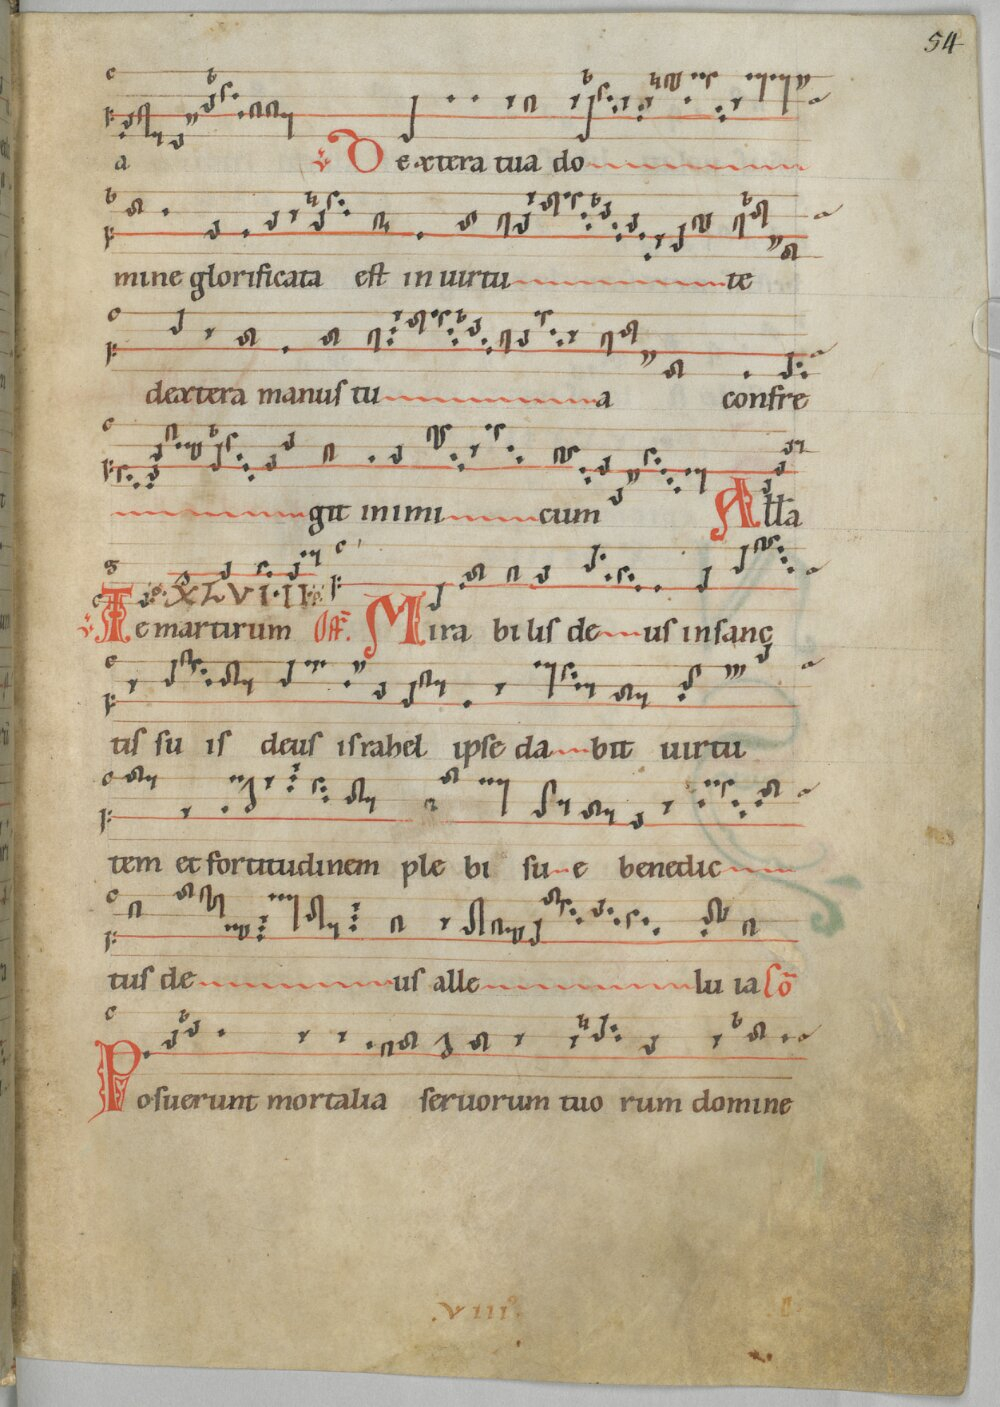 54
a D extera tua do
mine glorificata est in uirtu te
dextera manus tu a confre
git inimi cum All̄a
·XLVI·II·
Te martirum Off̄. Mira bi lis de us in sanc
tis su is deus israhel ipse da bit uirtu
tem et fortitudinem ple bi su e benedic
tus de us alle lu ia Cō
Posuerunt mortalia seruorum tuo rum domine
.VIII.